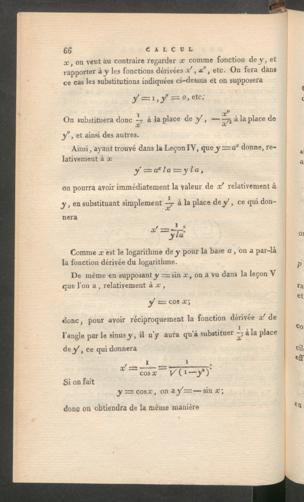 66 CALCUL
x, on veut au contraire regarder x comme fonction de y, et
rapporter à y les fonctions dérivées x', x", etc. On fera dans
ce cas les substitutions indiquées ci-dessus et on supposera
y' = 1, y" = 0, etc.
On substituera donc 1/x' à la place de y', — x"/x'³ à la place de
y", et ainsi des autres.
Ainsi, ayant trouvé dans la Leçon IV, que y = aˣ donne, re-
lativement à x
y' = aˣ la = y la,
on pourra avoir immédiatement la valeur de x' relativement à
y, en substituant simplement 1/x' à la place de y', ce qui don-
nera
x' = 1/(y la).
Comme x est le logarithme de y pour la base a, on a par-là
la fonction dérivée du logarithme.
De même en supposant y = sin x, on a vu dans la leçon V
que l'on a, relativement à x,
y' = cos x;
donc, pour avoir réciproquement la fonction dérivée x' de
l'angle par le sinus y, il n'y aura qu'à substituer 1/x' à la place
de y', ce qui donnera
x' = 1/cos x = 1/√(1—y²);
Si on fait
y = cos x, on a y' = — sin x;
donc on obtiendra de la même manière